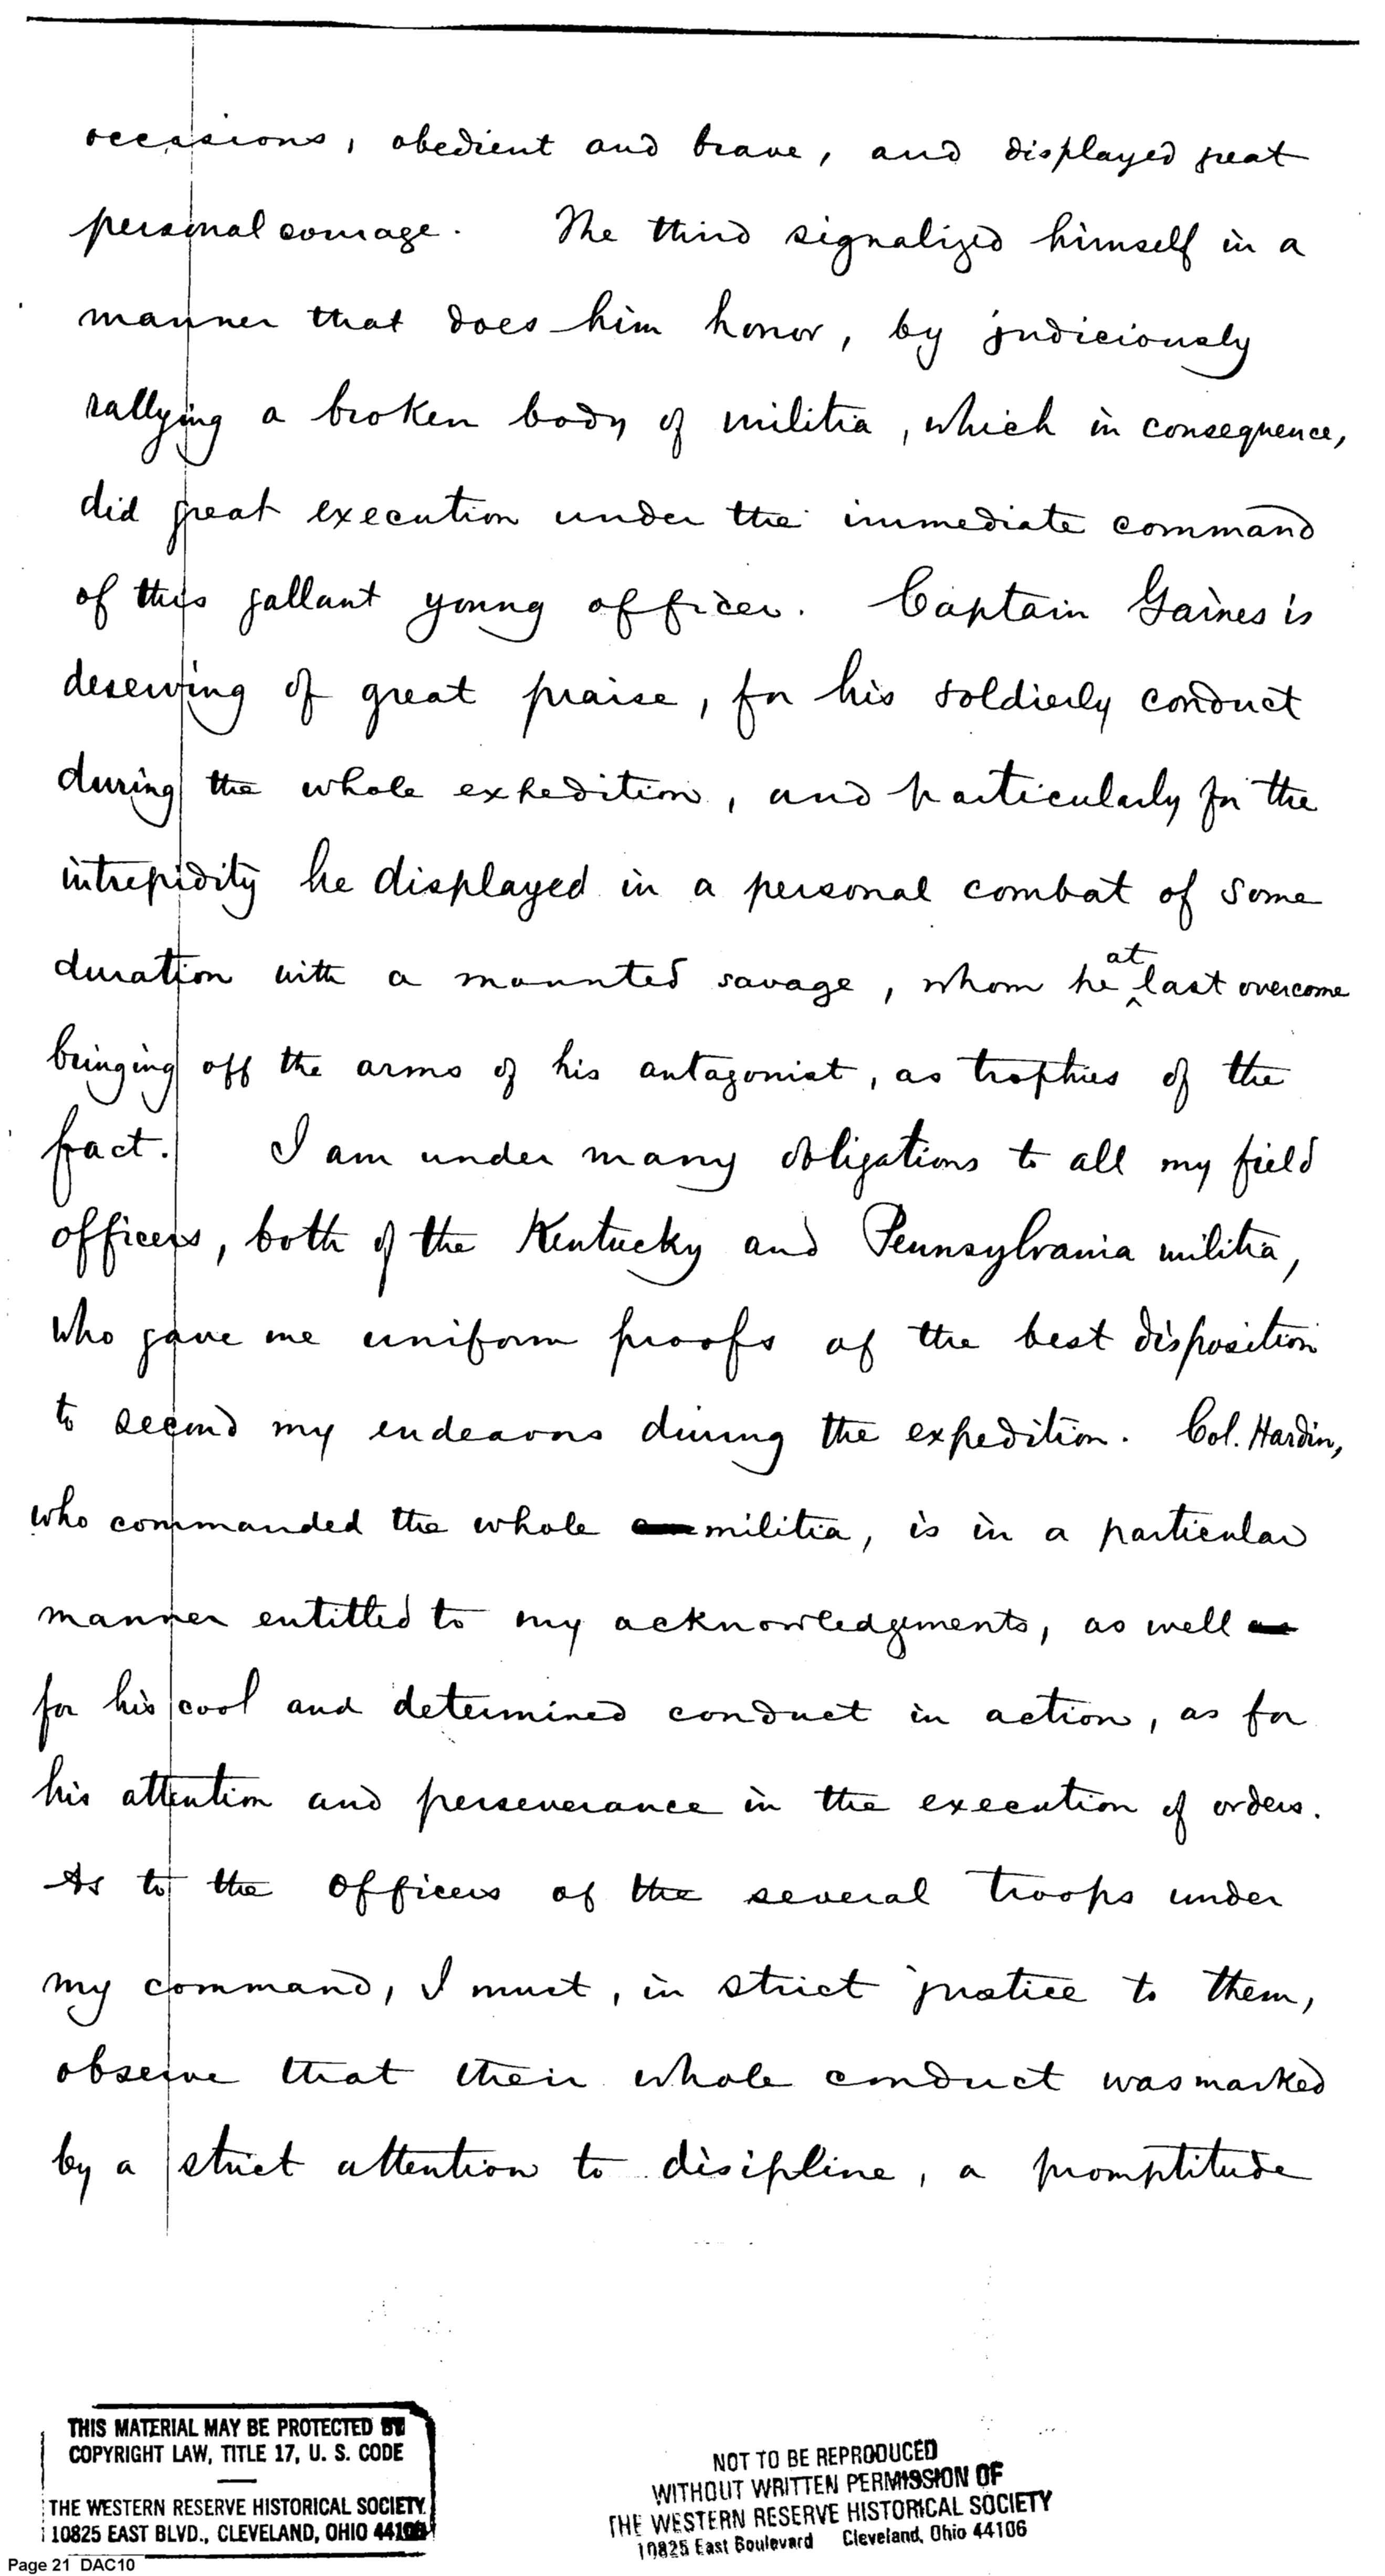 occasions, obedient and brave, and displayed great
personal courage. The third signalized himself in a
manner that does him honor, by judiciously
rallying a broken body of militia, which in consequence,
did great execution under the immediate command
of this gallant young officer. Captain Gaines is
deserving of great praise, for his soldierly conduct
during the whole expedition, and particularly for the
intrepidity he displayed in a personal combat of some
duration with a mounted savage, whom he at last overcome
bringing off the arms of his antagonist, as trophies of the
fact. I am under many obligations to all my field
officers, both of the Kentucky and Pennsylvania militia,
who gave me uniform proofs of the best disposition
to second my endeavors during the expedition. Col. Hardin,
who commanded the whole militia, is in a particular
manner entitled to my acknowledgments, as well as
for his cool and determined conduct in action, as for
his attention and perseverance in the execution of orders.
As to the Officers of the several troops under
my command, I must, in strict justice to them,
observe that their whole conduct was marked
by a strict attention to discipline, a promptitude
THIS MATERIAL MAY BE PROTECTED BY
COPYRIGHT LAW, TITLE 17, U. S. CODE
THE WESTERN RESERVE HISTORICAL SOCIETY
10825 EAST BLVD., CLEVELAND, OHIO 44106
NOT TO BE REPRODUCED
WITHOUT WRITTEN PERMISSION OF
THE WESTERN RESERVE HISTORICAL SOCIETY
10825 East Boulevard Cleveland, Ohio 44106
Page 21 DAC10